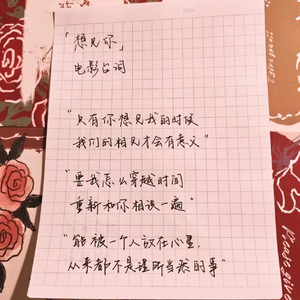 「想见你」
电影台词
"只有你想见我的时候
我们的相见才会有意义"
"要我怎么穿越时间
重新和你相识一遍"
"能被一个人放在心里,
从来都不是理所当然的事"
Please give